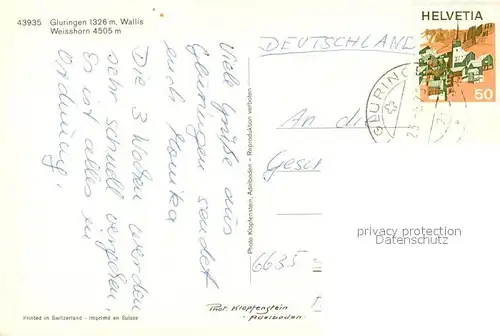 43935 Gluringen 1326 m, Wallis
Weisshorn 4505 m
Viele Grüße aus
Gluringen sendet
euch Monika
Die 3 Wochen werden
sehr schnell vergehen.
Es ist alles in
Ordnung.
Photo Klopfenstein, Adelboden - Reproduktion verboten
DEUTSCHLAND
HELVETIA
50
GLURINGEN
An di
Gesc
6635
privacy protection
Datenschutz
Phot. Klopfenstein
Adelboden
Printed in Switzerland - Imprimé en Suisse